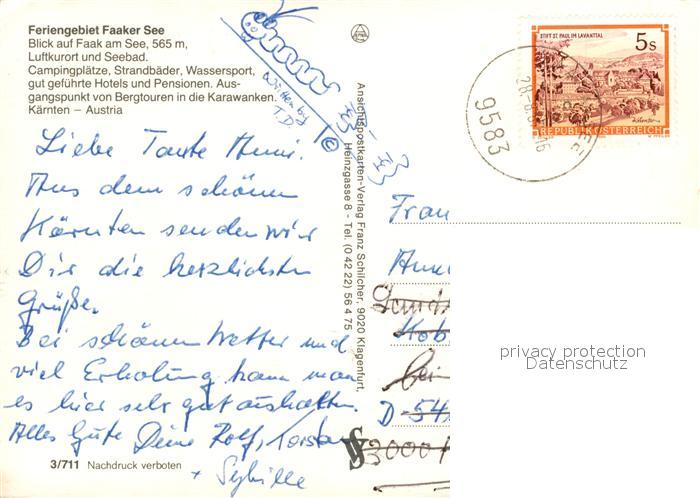 Feriengebiet Faaker See
Blick auf Faak am See, 565 m,
Luftkurort und Seebad.
Campingplätze, Strandbäder, Wassersport,
gut geführte Hotels und Pensionen. Aus-
gangspunkt von Bergtouren in die Karawanken.
Kärnten – Austria
T.D.
©
Liebe Tante Anni.
Aus dem schönen
Kärnten senden wir
Dir die herzlichsten
Grüße.
Bei schönem Wetter und
viel Erholung kann man
es hier sehr gut aushalten.
Alles Gute Deine Rolf, Torsten
+ Sybille
3/711 Nachdruck verboten
Ansichtspostkarten-Verlag Franz Schilcher, 9020 Klagenfurt,
Heinzgasse 8 - Tel. (0 42 22) 56 4 75
STIFT ST. PAUL IM LAVANTTAL
5 S
REPUBLIK ÖSTERREICH
9583
Frau
Anni
Kob
bei
D-54
3000
privacy protection
Datenschutz